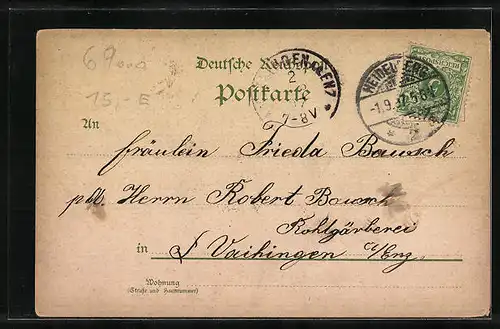 69000
15,- E
Deutsche Reichspost
Postkarte
2
7-8V
HEIDELBERG
1.9.97.5-6N
* 2
An
fräulein Frieda Bausch
Herrn Robert Bausch
Rohlgärberei
in Vaihingen a/Enz
Wohnung
(Straße und Hausnummer)